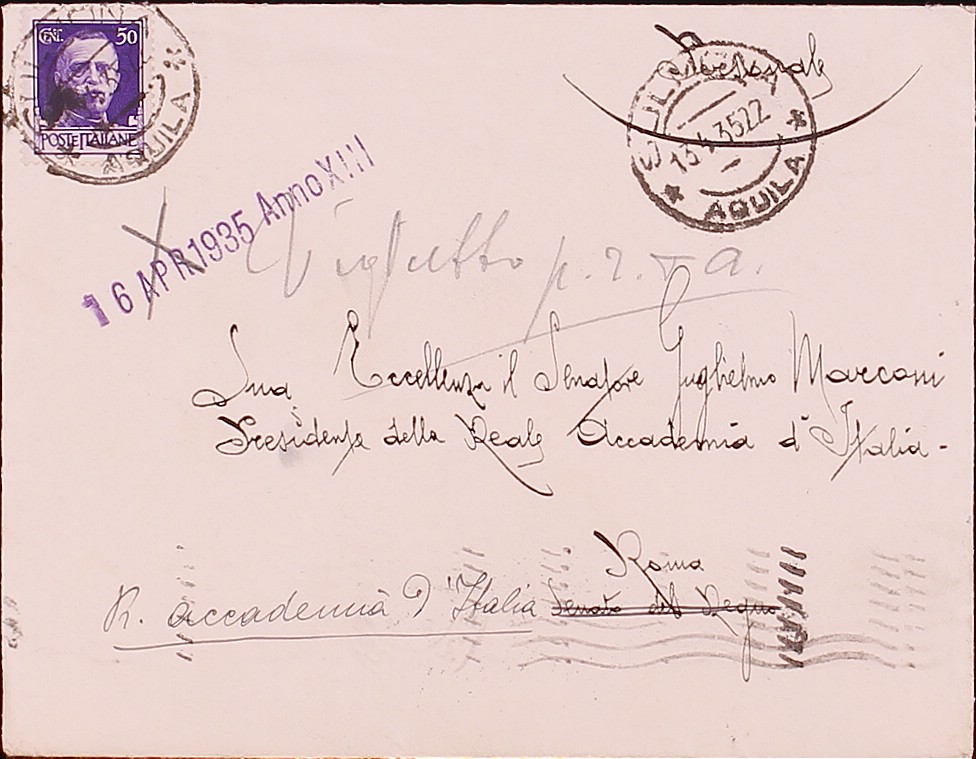 CENT. 50
POSTE ITALIANE
AQUILA
Personale
SULMONA
13.4.35 22
AQUILA
16 APR 1935 Anno XIII
Biglietto p. r. - a.
Sua Eccellenza il Senatore Guglielmo Marconi
Presidente della Reale Accademia d'Italia -
Roma
R. Accademia d'Italia Senato del Regno